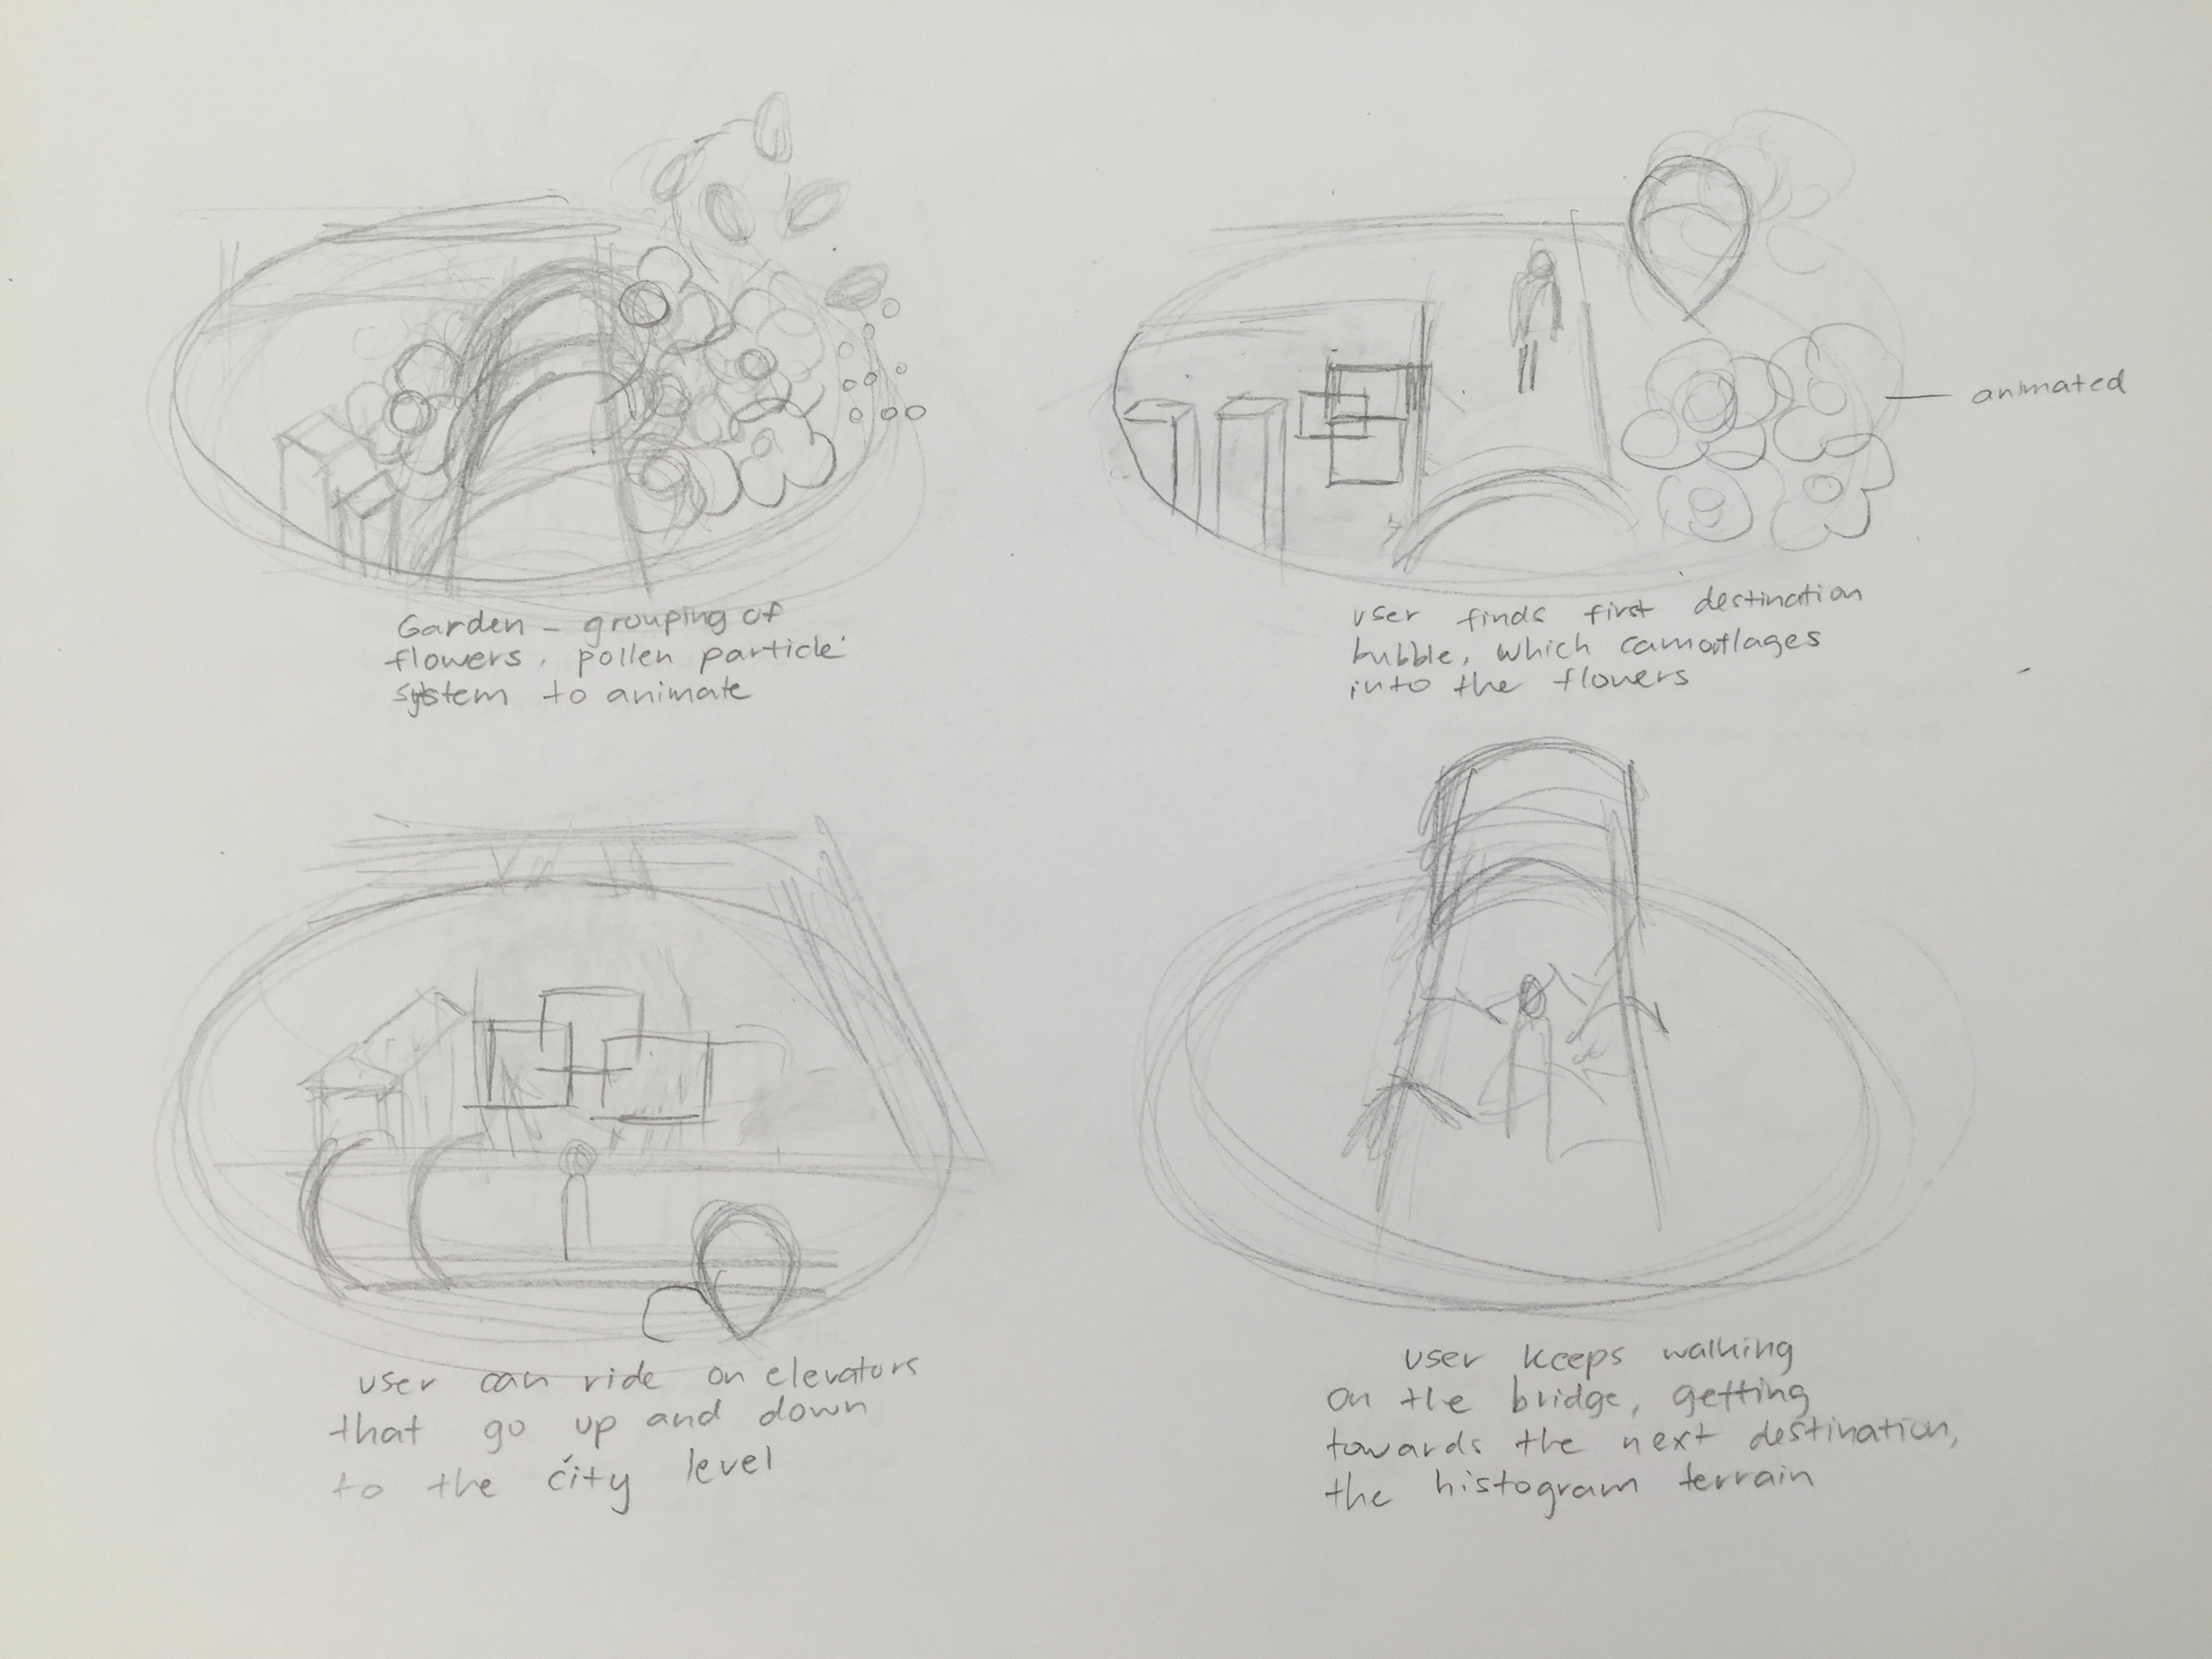 Garden - grouping of
flowers, pollen particle
system to animate
animated
user finds first destination
bubble, which camoflages
into the flowers
user can ride on elevators
that go up and down
to the city level
user keeps walking
on the bridge, getting
towards the next destination,
the histogram terrain